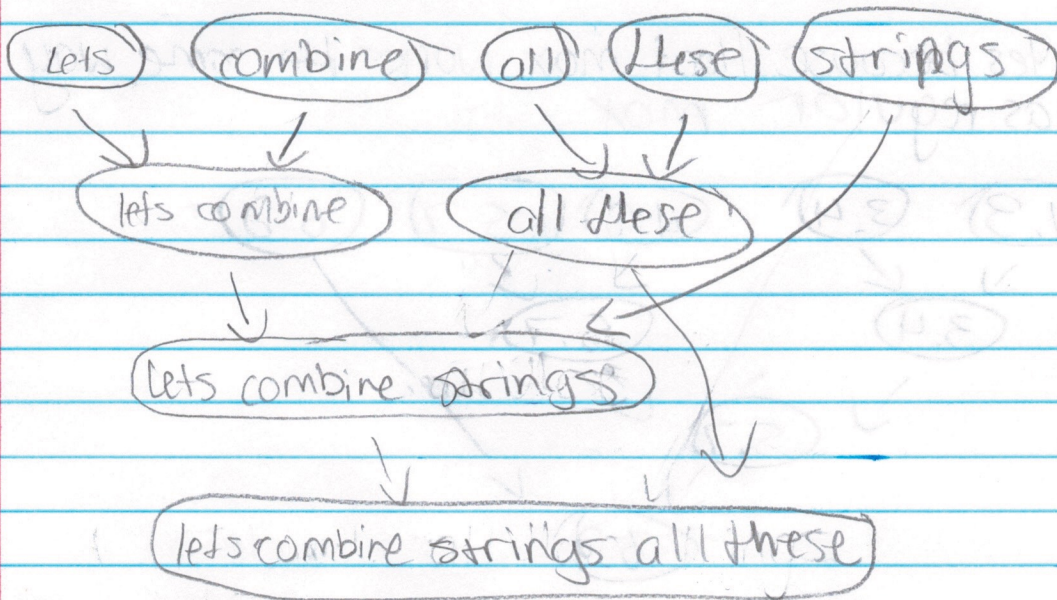 Lets combine all these strings
lets combine all these
lets combine strings
lets combine strings all these